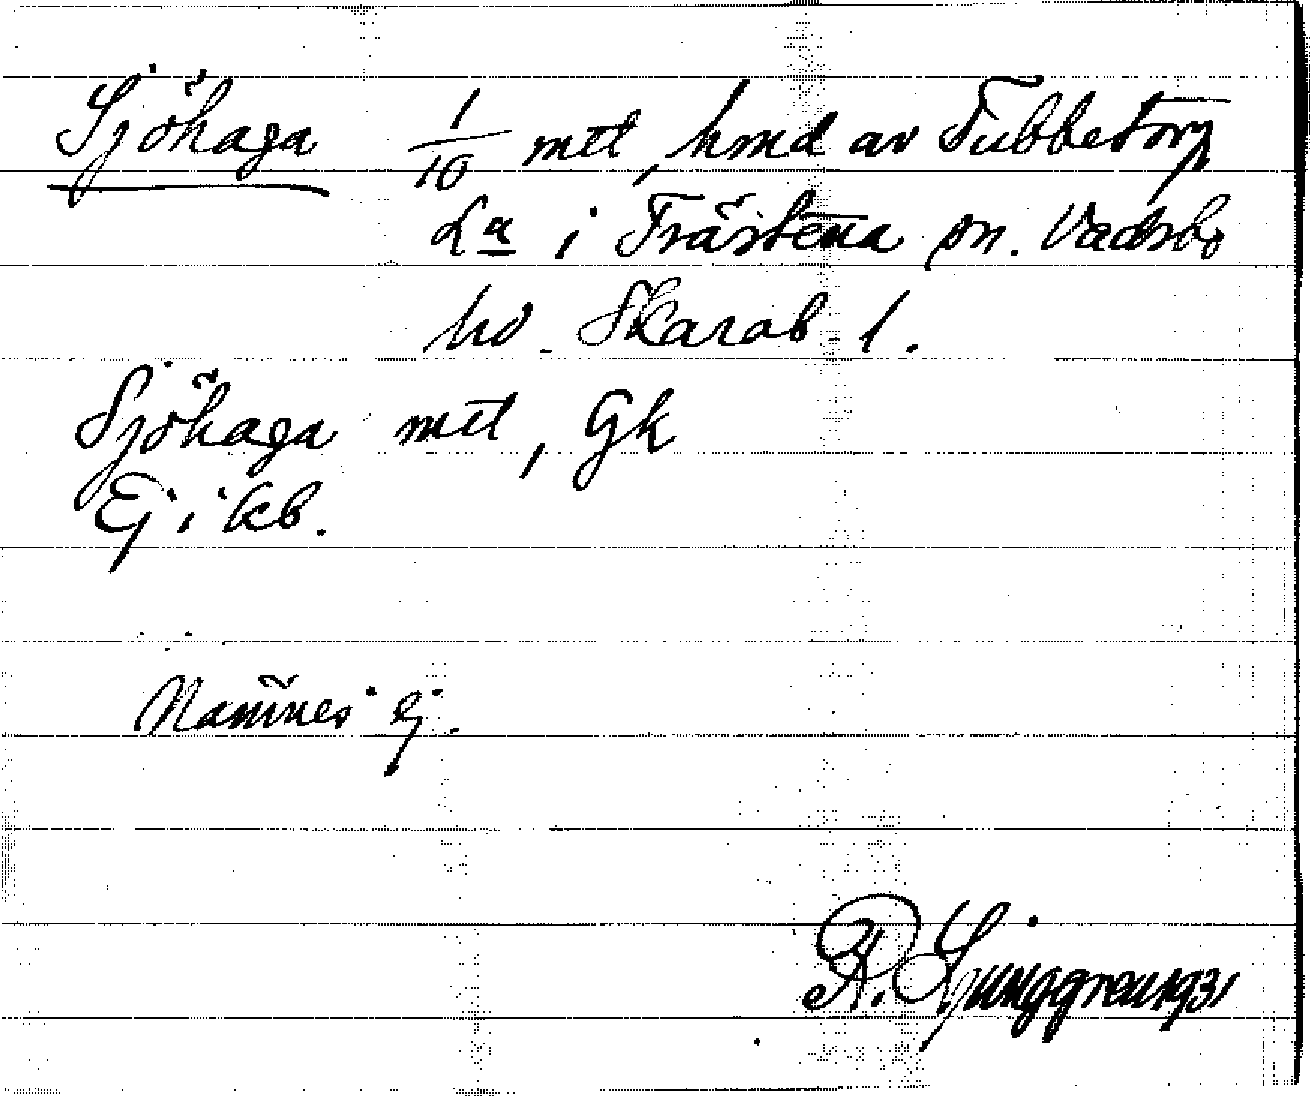 Sjöhaga 1/10 mtl, hmd av Tubbetorp
La i Trästena sn. Vadsbo
hd. Skarab l.
Sjöhaga mtl, Gk
Ej i kb.
Namnes ej.
R. Ljunggren 1931